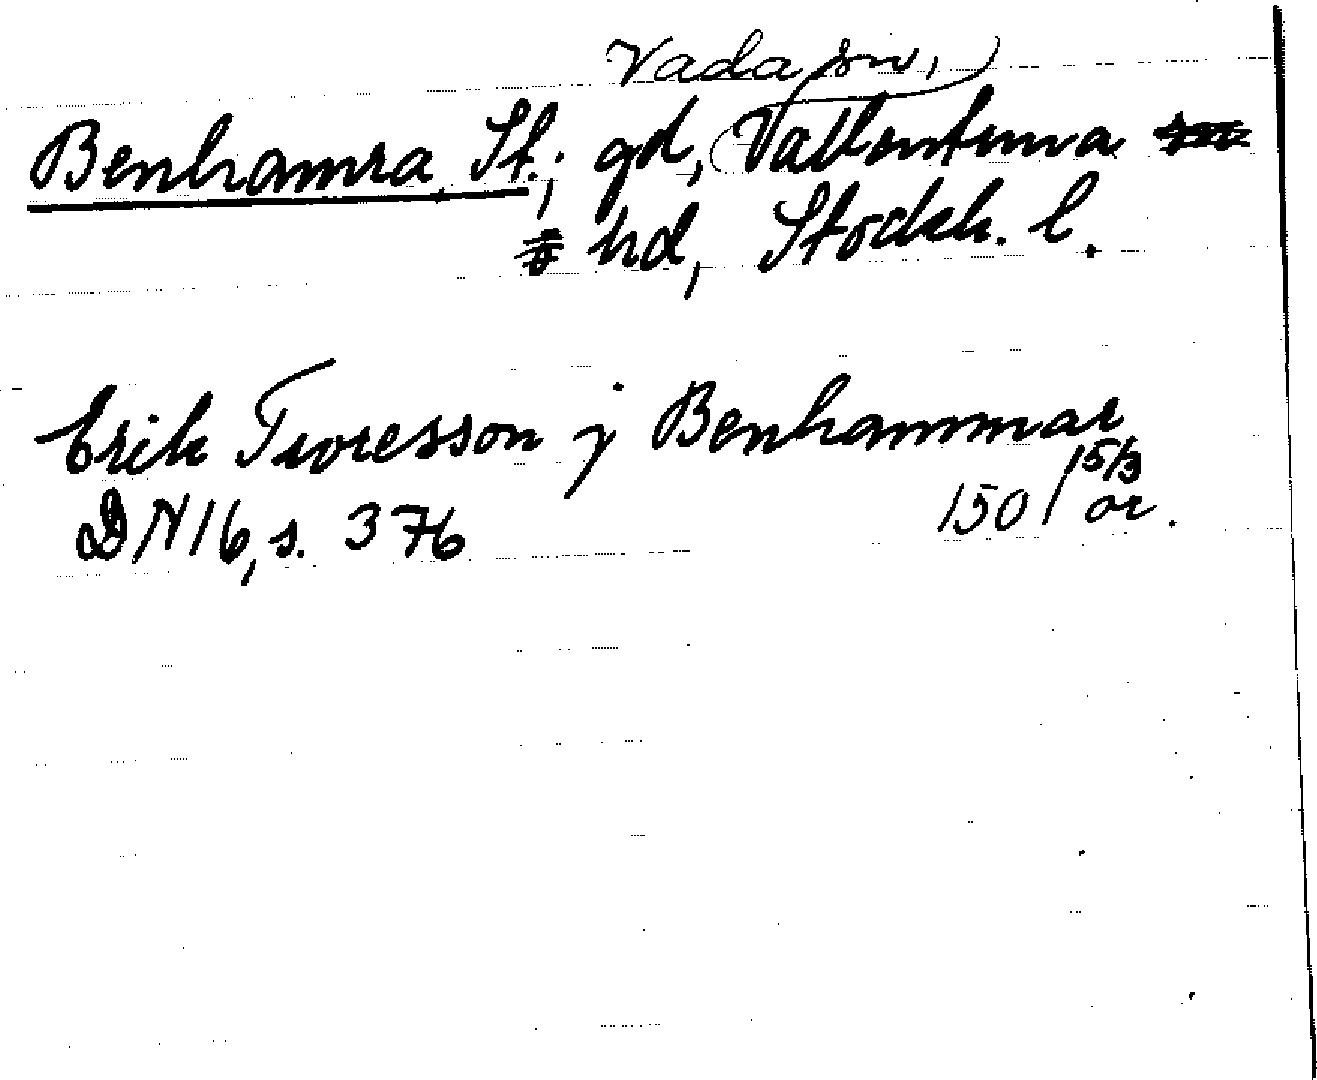 Vada sn,
Benhamra, St., gd, Vallentuna
hd, Stockh. l.
Erik Twresson j Benhammar
DN 16, s. 376 150 / 15/3 or.